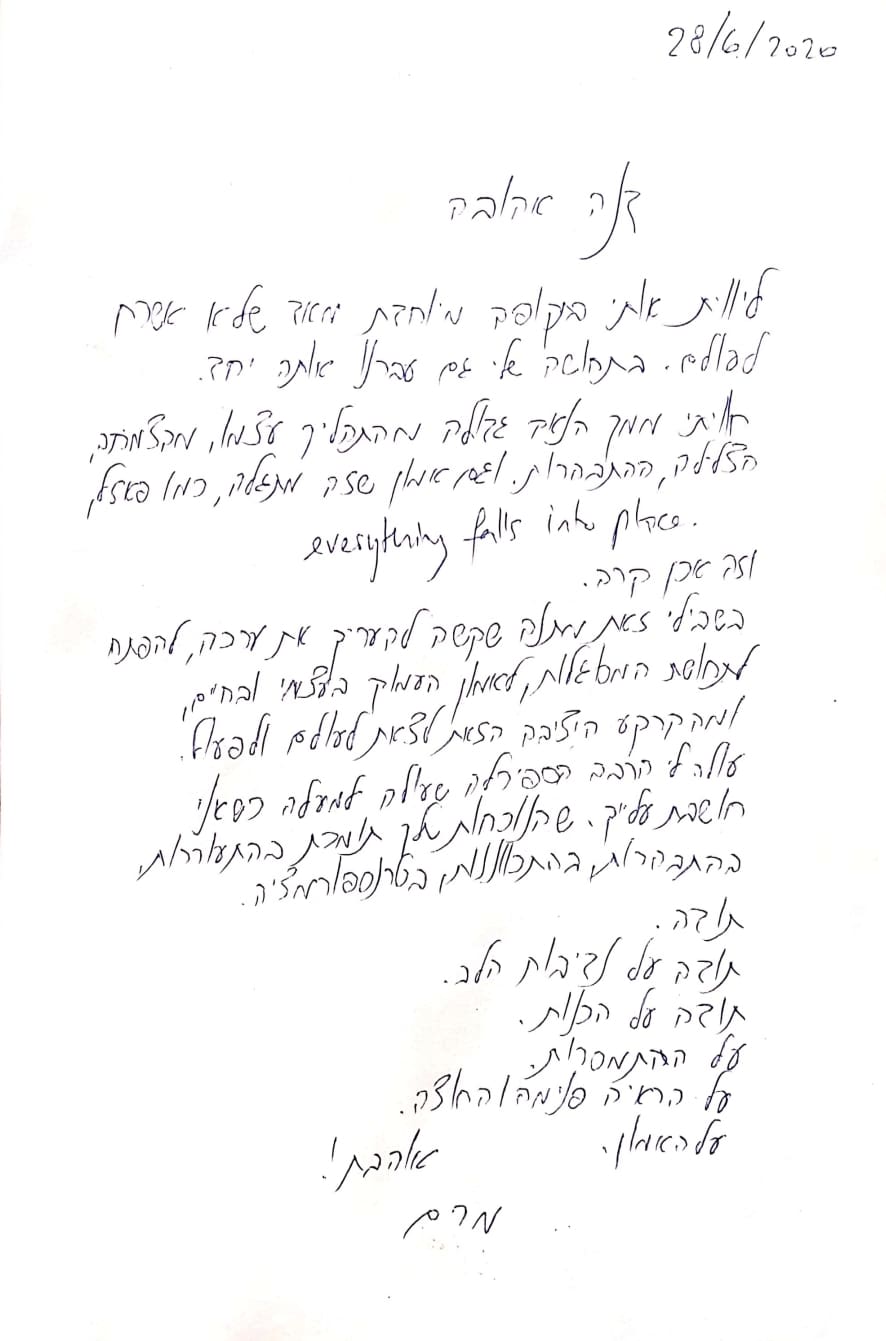 28/6/2020
דנה אהובה
ליווית אותי בתקופה מיוחדת מאוד שלא אשכח
לעולם. בתחושה שלי גם עברנו אותה יחד.
חוויתי ממך הנאה גדולה מהתהליך עצמו, מהצמיחה,
הצלילה, ההתבהרות. וגם אמון שזה מתגלה, כמו פאזל,
everything falls into place.
וזה אכן קרה.
בשבילי זאת מתנה שקשה להעריך את ערכה, להפתח
לתחושת המסוגלות, לאמון העמוק בעצמי ובחיים,
ומהקרקע היציבה הזאת לצאת לעולם ולפעול.
עולה לי הרבה הספירלה שעולה למעלה כשאני
חושבת עלייך. שהנוכחות שלך תומכת בהתעוררות,
בהתבהרות, בהתכווננות, בטרנספורמציה.
תודה.
תודה על נדיבות הלב.
תודה על הכנות.
על ההתמסרות.
על הראיה פנימה והחוצה.
על האמון.
אוהבת!
מרם